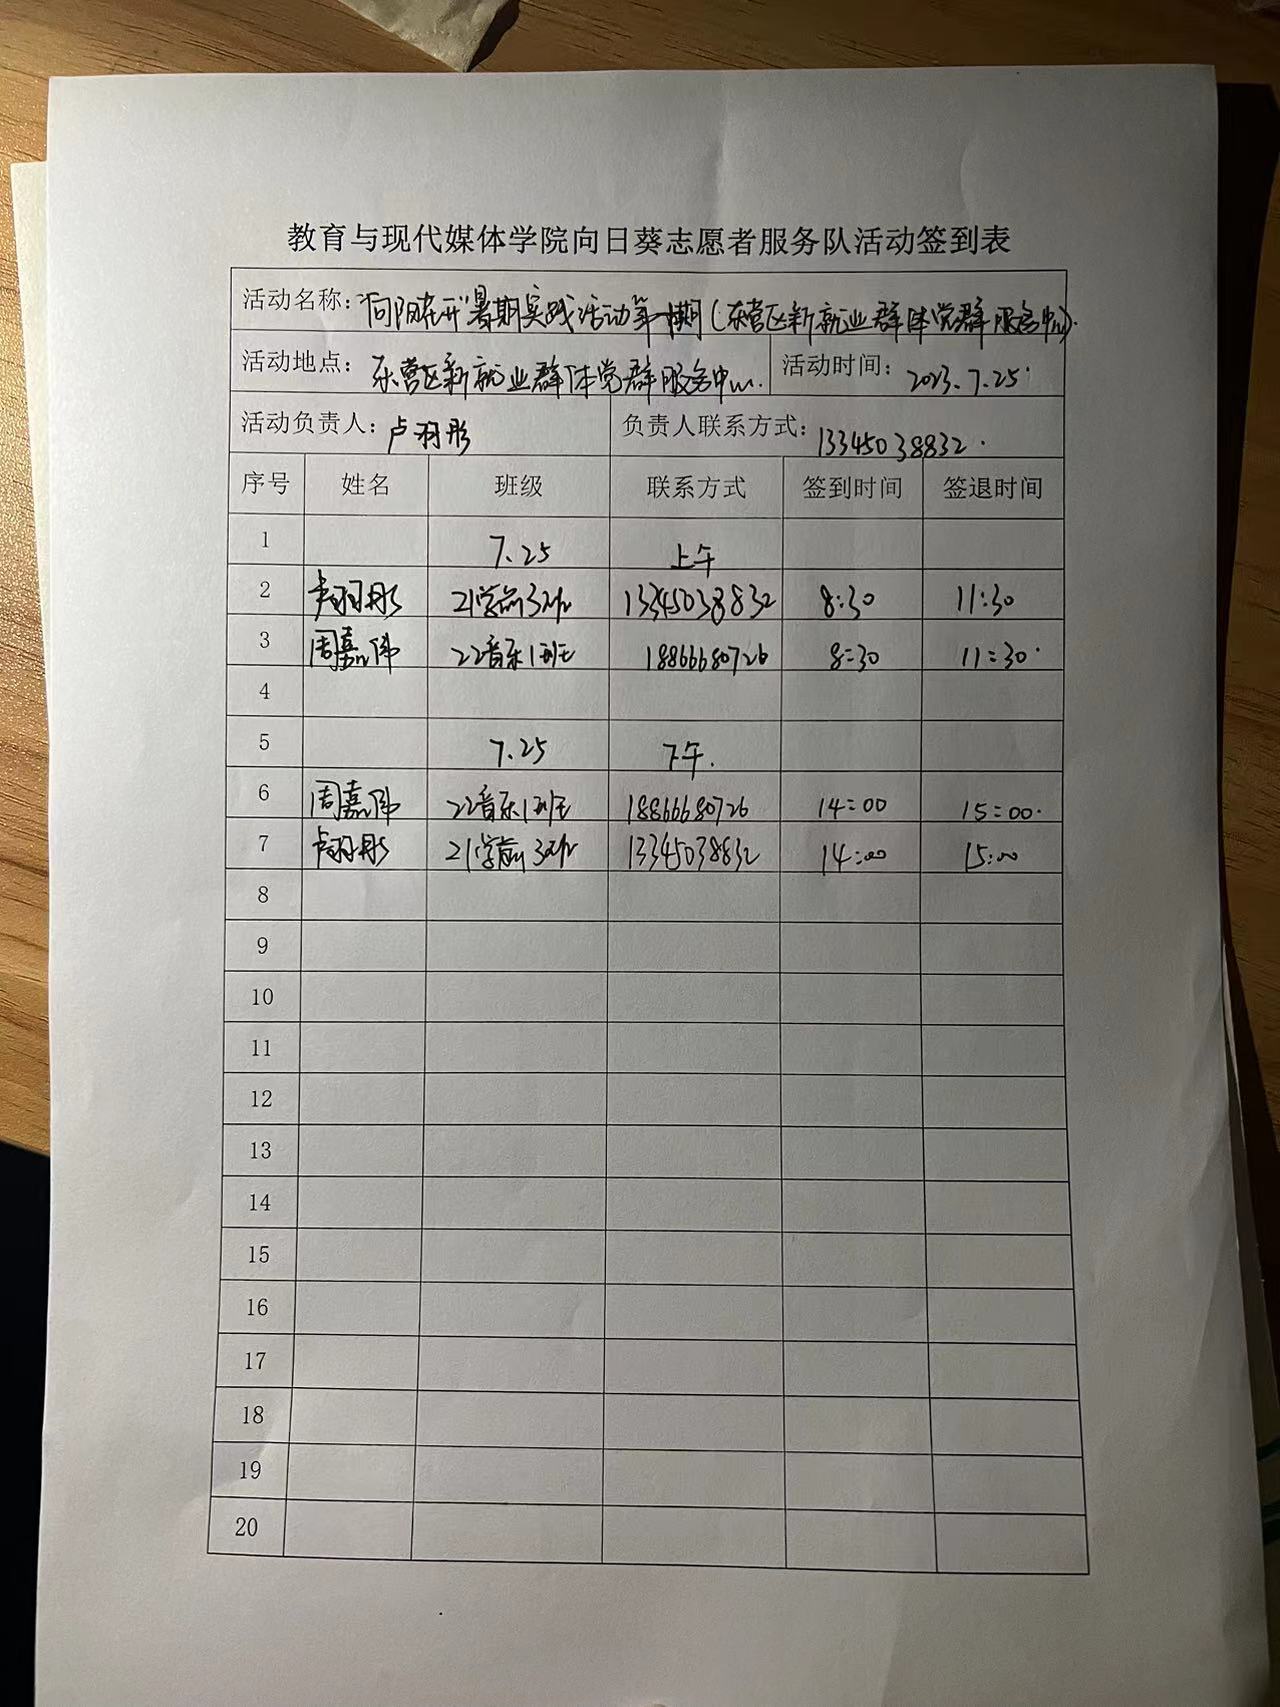 教育与现代媒体学院向日葵志愿者服务队活动签到表
活动名称：“向阳花开”暑期实践活动第十期（东营区新就业群体党群服务中心）.
活动地点：东营区新就业群体党群服务中心. 活动时间：2023.7.25
活动负责人：卢羽彤 负责人联系方式：13345038832.
序号 姓名 班级 联系方式 签到时间 签退时间
1 7.25 上午
2 卢羽彤 21学前3班 13345038832 8:30 11:30
3 周嘉伟 22音乐1班 18866680726 8:30 11:30
4
5 7.25 下午.
6 周嘉伟 22音乐1班 18866680726 14:00 15:00.
7 卢羽彤 21学前3班 13345038832 14:00 15:00
8
9
10
11
12
13
14
15
16
17
18
19
20